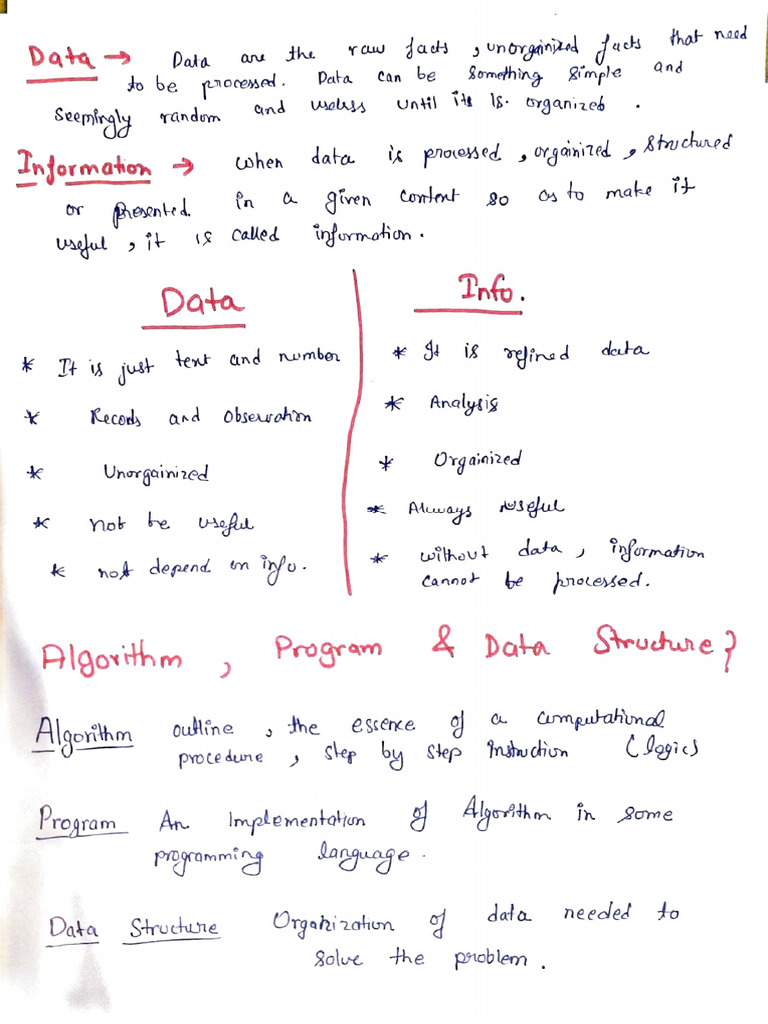 Data → Data are the raw facts, unorgainized facts that need
to be processed. Data can be something simple and
seemingly random and useless until its is organized.
Information → when data is processed, orgainized, structured
or presented in a given content so as to make it
useful, it is called information.
Data
* It is just text and number
* Records and Observation
* Unorgainized
* not be useful
* not depend on info.
Info.
* It is refined data
* Analysis
* Orgainized
* Always useful
* without data, information
cannot be processed.
Algorithm, Program & Data Structure?
Algorithm outline, the essence of a computational
procedure, step by step Instruction (logic)
Program An Implementation of Algorithm in some
programming language.
Data Structure Organization of data needed to
solve the problem.